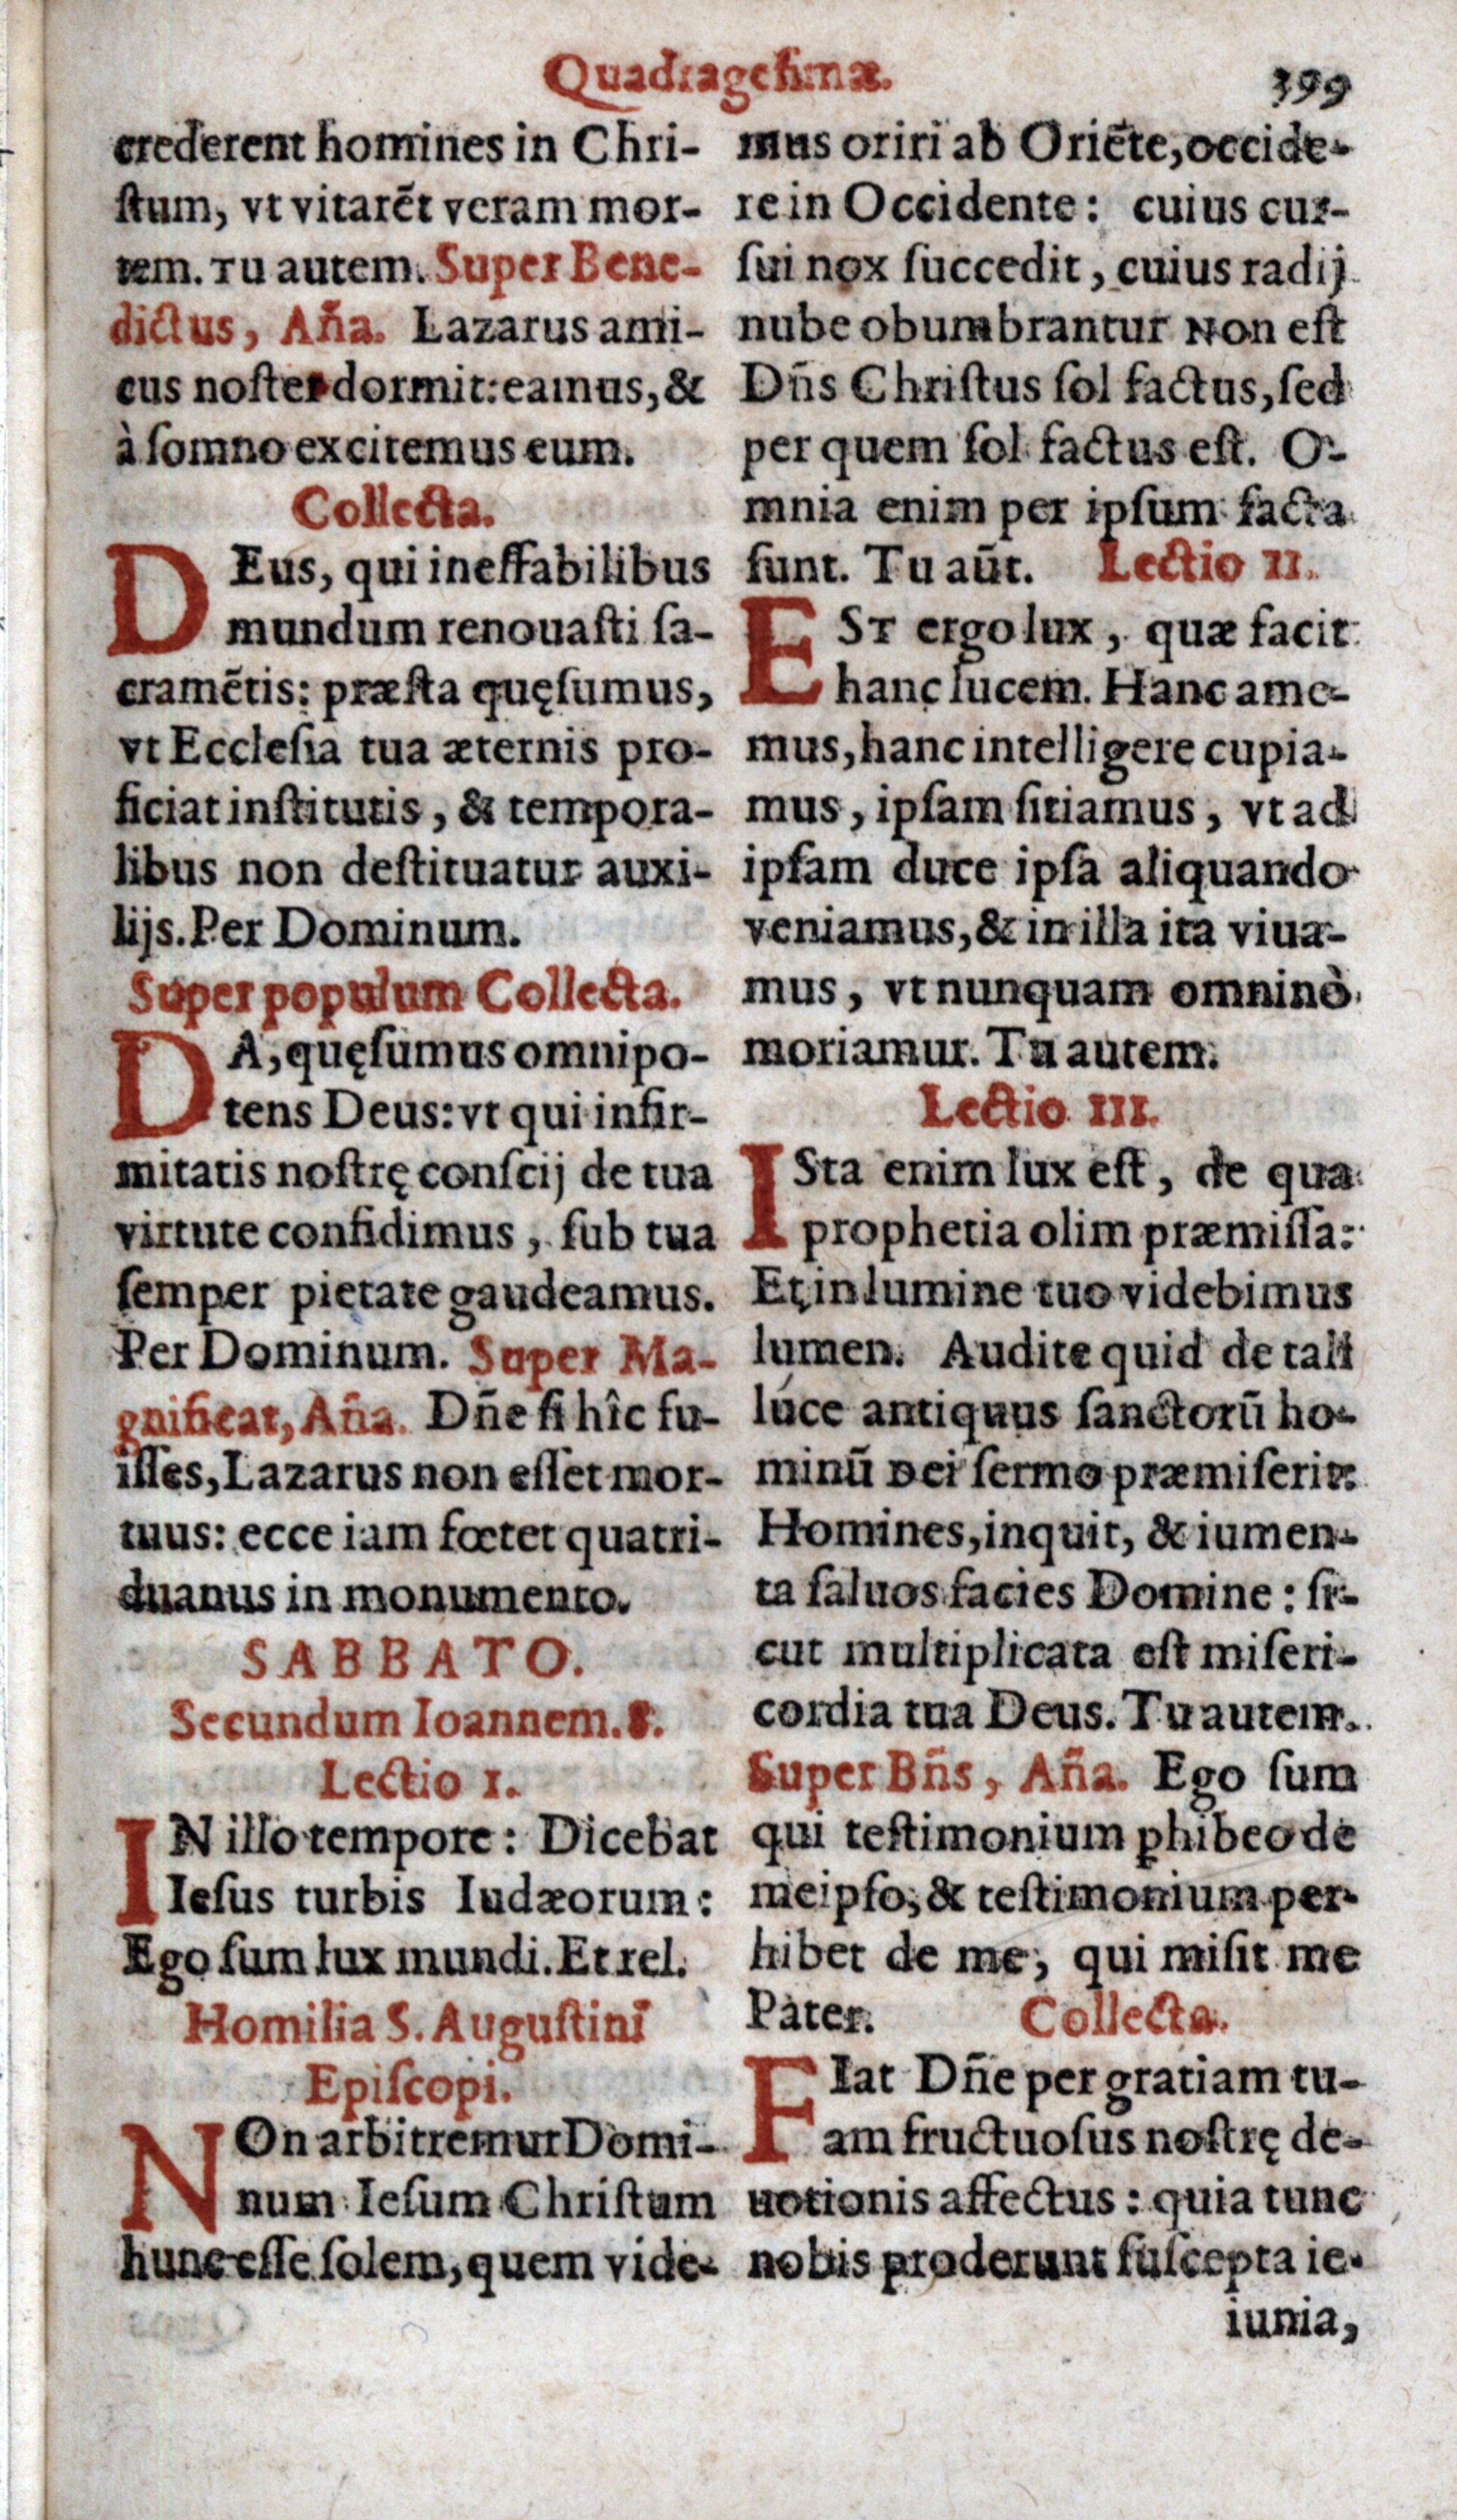 Quadragesimæ. 399
crederent homines in Chri-
ſtum, vt vitarēt veram mor-
tem. Tu autem. Super Bene-
dictus, Aña. Lazarus ami-
cus noſter dormit: eamus, &
à ſomno excitemus eum.
Collecta.
DEus, qui ineffabilibus
mundum renouaſti ſa-
cramētis: præſta quęſumus,
vt Eccleſia tua æternis pro-
ficiat inſtitutis, & tempora-
libus non deſtituatur auxi-
lijs. Per Dominum.
Super populum Collecta.
DA, quęſumus omnipo-
tens Deus: vt qui infir-
mitatis noſtrę conſcij de tua
virtute confidimus, ſub tua
ſemper pietate gaudeamus.
Per Dominum. Super Ma-
gnificat, Aña. Dñe ſi hîc fu-
iſſes, Lazarus non eſſet mor-
tuus: ecce iam fœtet quatri-
duanus in monumento.
SABBATO.
Secundum Ioannem. 8.
Lectio I.
IN illo tempore: Dicebat
Ieſus turbis Iudæorum:
Ego ſum lux mundi. Et rel.
Homilia S. Auguſtini
Epiſcopi.
NOn arbitremur Domi-
num Ieſum Chriſtum
hunc eſſe ſolem, quem vide-
mus oriri ab Oriēte, occide-
re in Occidente: cuius cur-
ſui nox ſuccedit, cuius radij
nube obumbrantur Non eſt
Dñs Chriſtus ſol factus, ſed
per quem ſol factus eſt. O-
mnia enim per ipſum facta
ſunt. Tu aūt. Lectio II.
EST ergo lux, quæ facit
hanc lucem. Hanc ame-
mus, hanc intelligere cupia-
mus, ipſam ſitiamus, vt ad
ipſam duce ipſa aliquando
veniamus, & in illa ita viua-
mus, vt nunquam omninò
moriamur. Tu autem.
Lectio III.
ISta enim lux eſt, de qua
prophetia olim præmiſſa:
Et in lumine tuo videbimus
lumen. Audite quid de tali
lúce antiquus ſanctorū ho-
minū Dei ſermo præmiſerit:
Homines, inquit, & iumen-
ta ſaluos facies Domine: ſi-
cut multiplicata eſt miſeri-
cordia tua Deus. Tu autem.
Super Bñs, Aña. Ego ſum
qui teſtimonium ꝑhibeo de
meipſo, & teſtimonium per-
hibet de me, qui miſit me
Pater. Collecta.
FIat Dñe per gratiam tu-
am fructuoſus noſtrę de-
uotionis affectus: quia tunc
nobis proderunt ſuſcepta ie-
iunia,